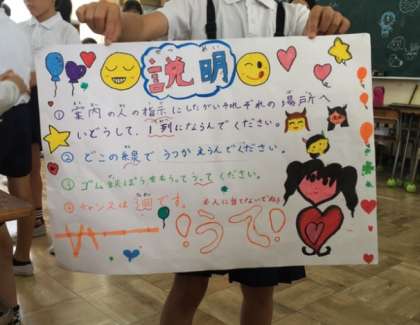 せつめい
説明
①案内の人の指示にしたがいそれぞれの場所へ
いどうして、1列にならんでください。
②どこの線でうつかえらんでください。
③ゴム鉄ぽうをもってうってください。
④チャンスは です。
人に当てないでね
!うて!